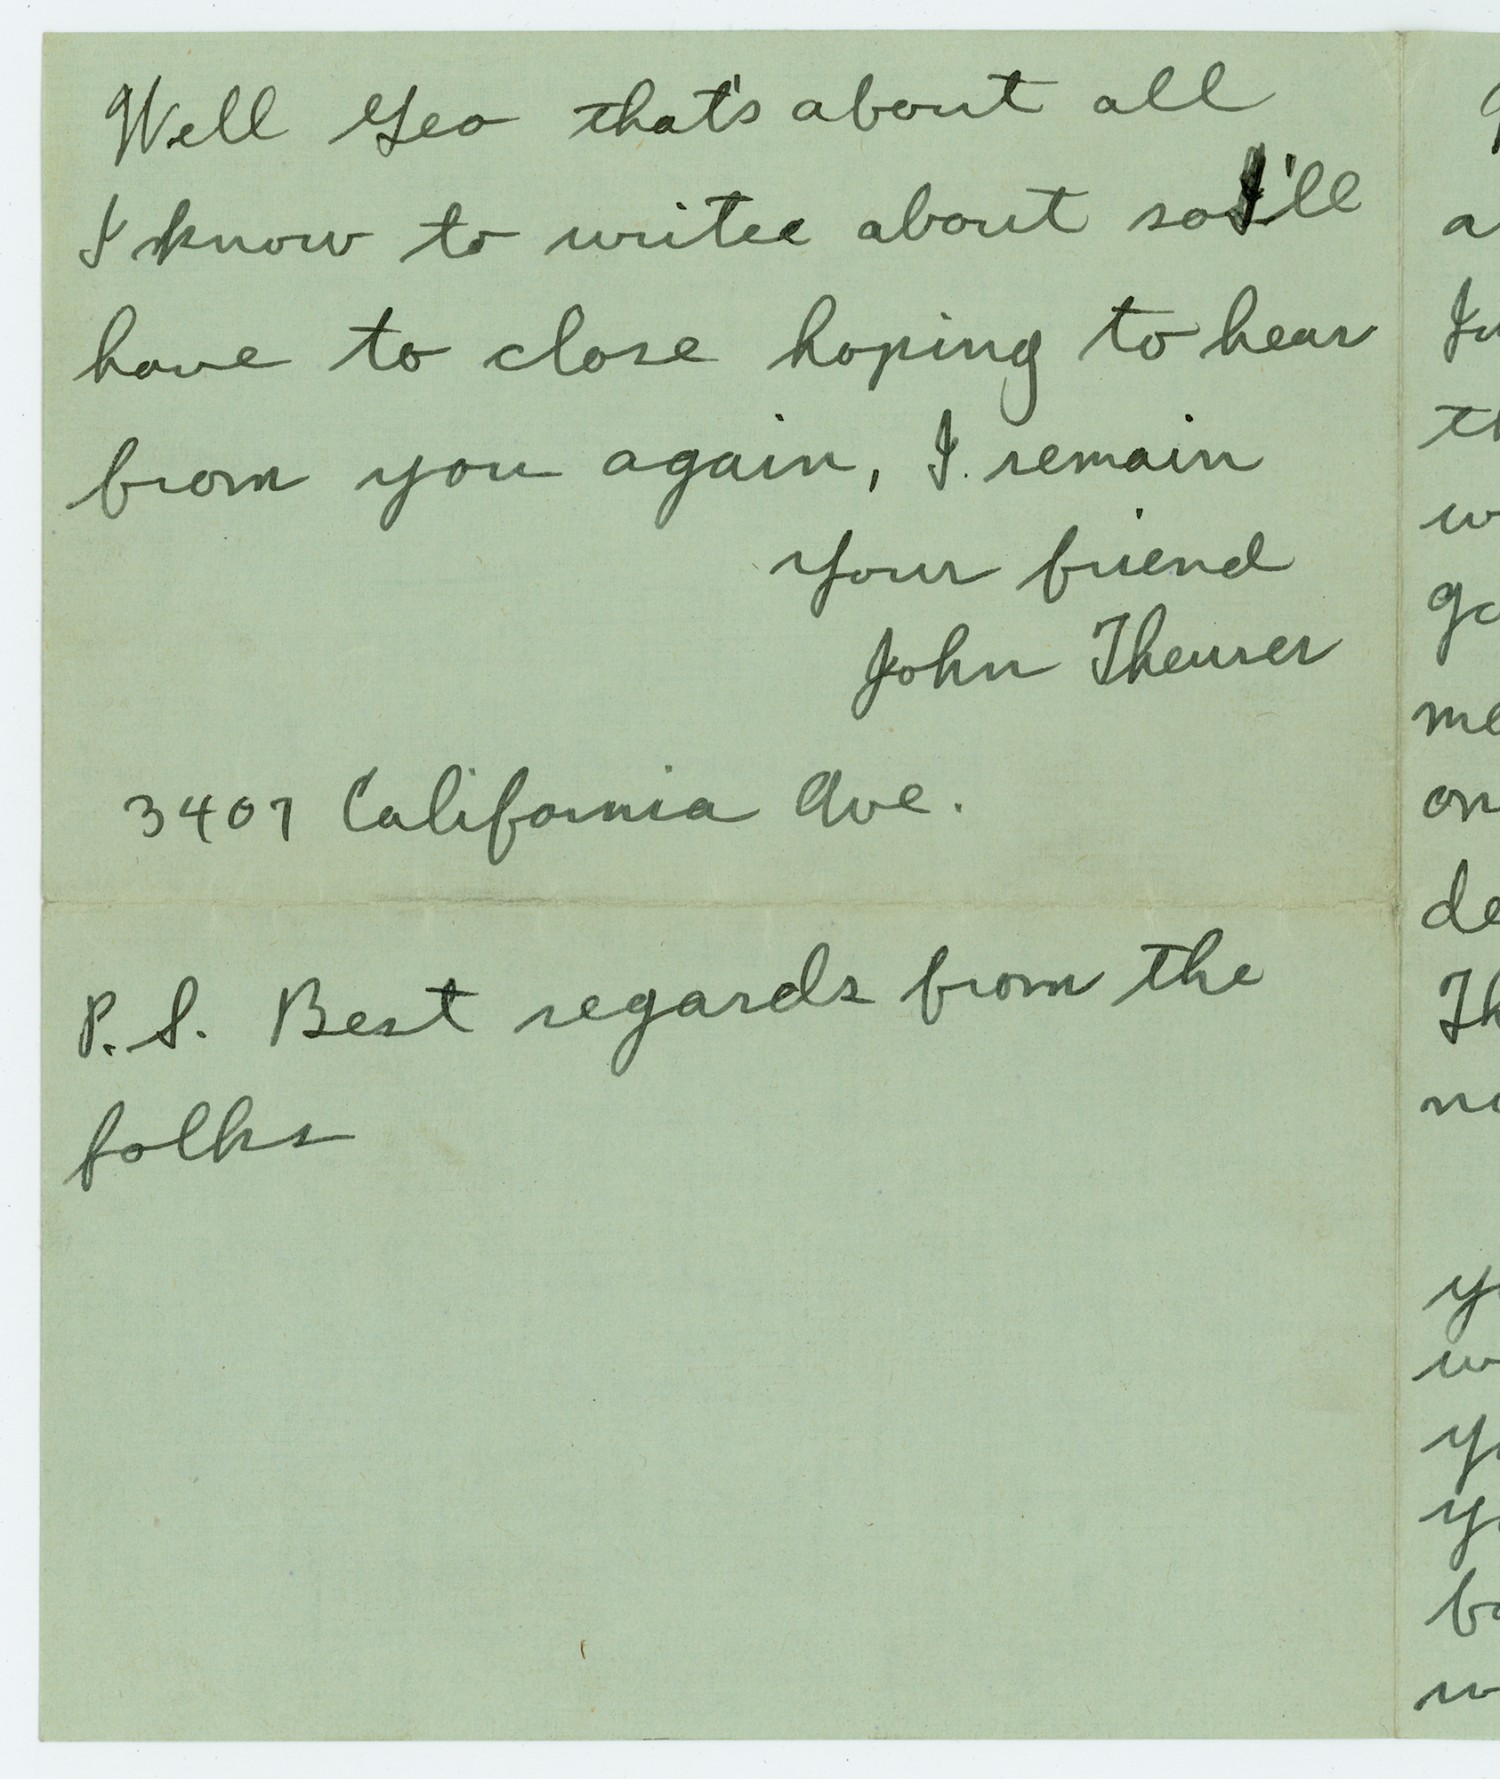 Well Geo that's about all
I know to writee about so I'll
have to close hoping to hear
from you again, I. remain
your friend
John Theurer
3407 California Ave.
P.S. Best regards from the
folks